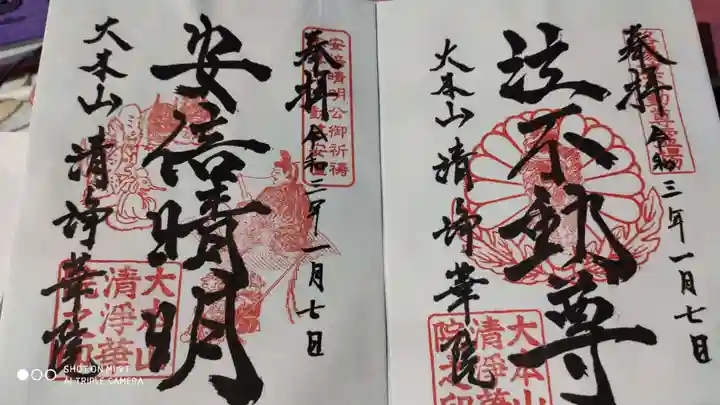 奉拝
令和三年一月七日
安倍晴明公御祈祷
安倍晴明
大本山 清浄華院
大本山
清淨華
院之印
奉拝
令和三年一月七日
泣不動尊
大本山 清浄華院
大本山
清淨華
院之印
SHOT ON MI 9T
AI TRIPLE CAMERA